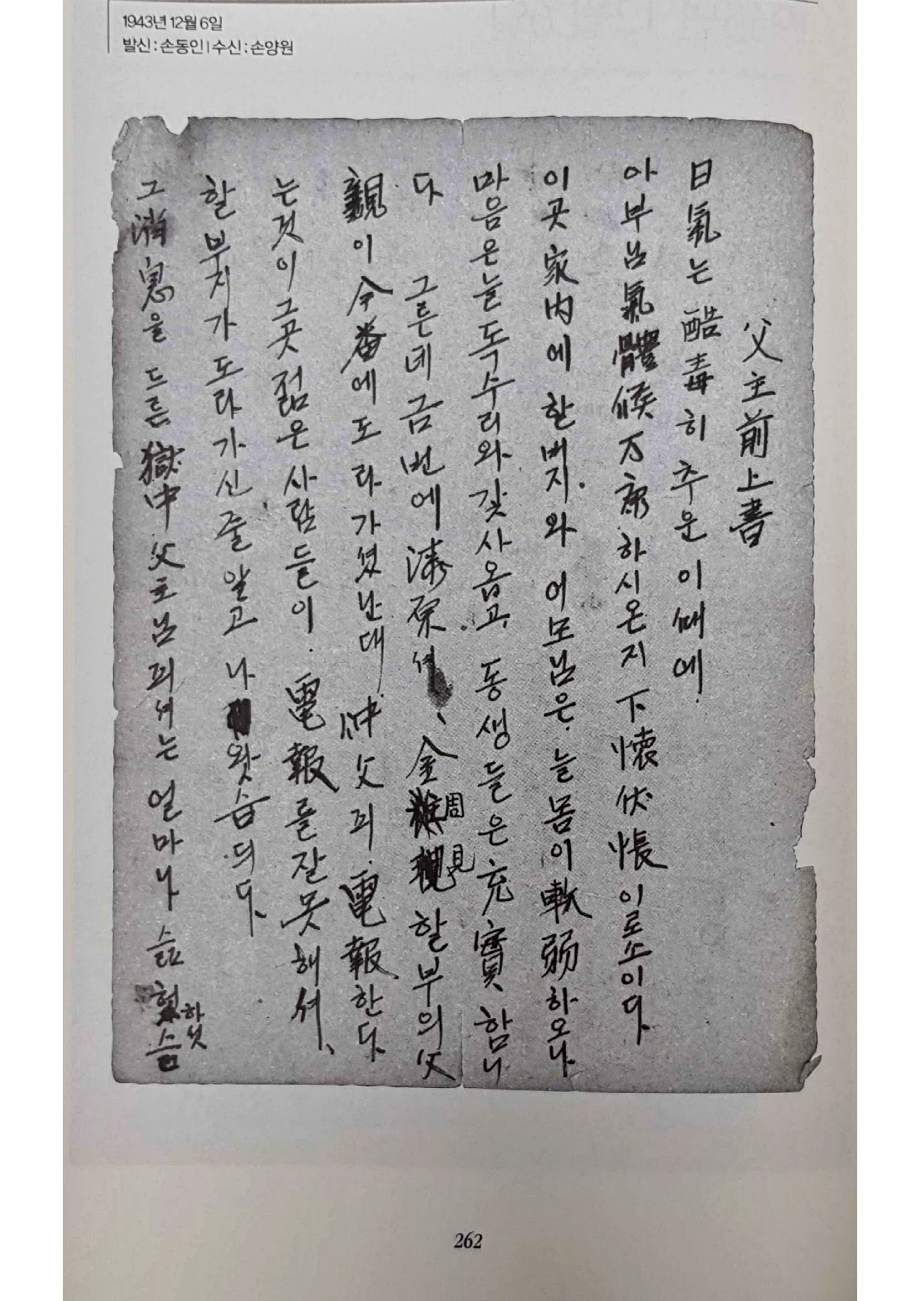 1943년 12월 6일
발신 : 손동인 | 수신 : 손양원
父主前上書
日氣는 酷毒히 추운 이때에
아부님 氣體候万 하시온지 下懷伏悵이로소이다
이곳 家內에 할버지와 어모님은 늘 몸이 軟弱하오나
마음은 늘 독수리와 갗사옵고, 동생들은 充實함니
다 그른데 금번에 셔 、金 周見 할부의 父
親이 今番에 도라가셨난대 仲父끠 電報한다
는것이 그곳 젊은 사람들이 電報를 잘못해셔、
할부지가 도라가신줄 알고 나왓습듸다
그 消息을 드른 獄中 父主님끠셔는 얼마나 하섯
262